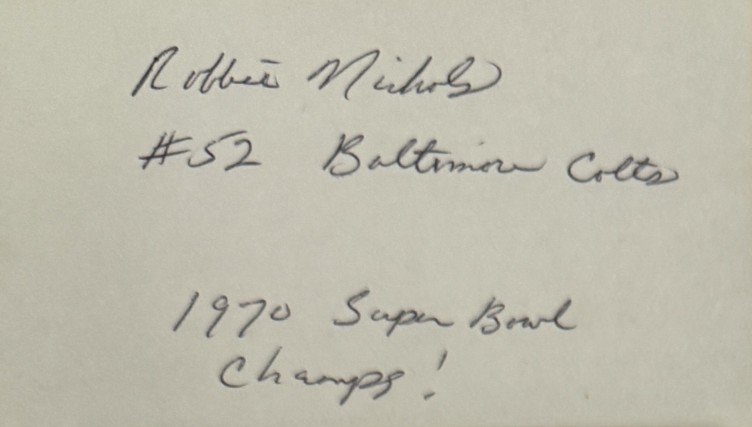 Robbie Nichols
#52 Baltimore Colts
1970 Super Bowl
Champs!